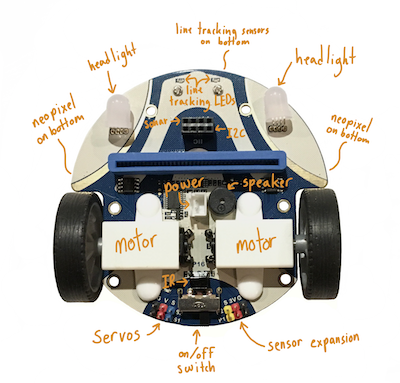 line tracking sensors
on bottom
headlight
headlight
line
tracking LEDs
neopixel
on bottom
neopixel
on bottom
Sonar
I2C
power
speaker
motor
motor
P16
IR
Servos
on/off
switch
sensor expansion